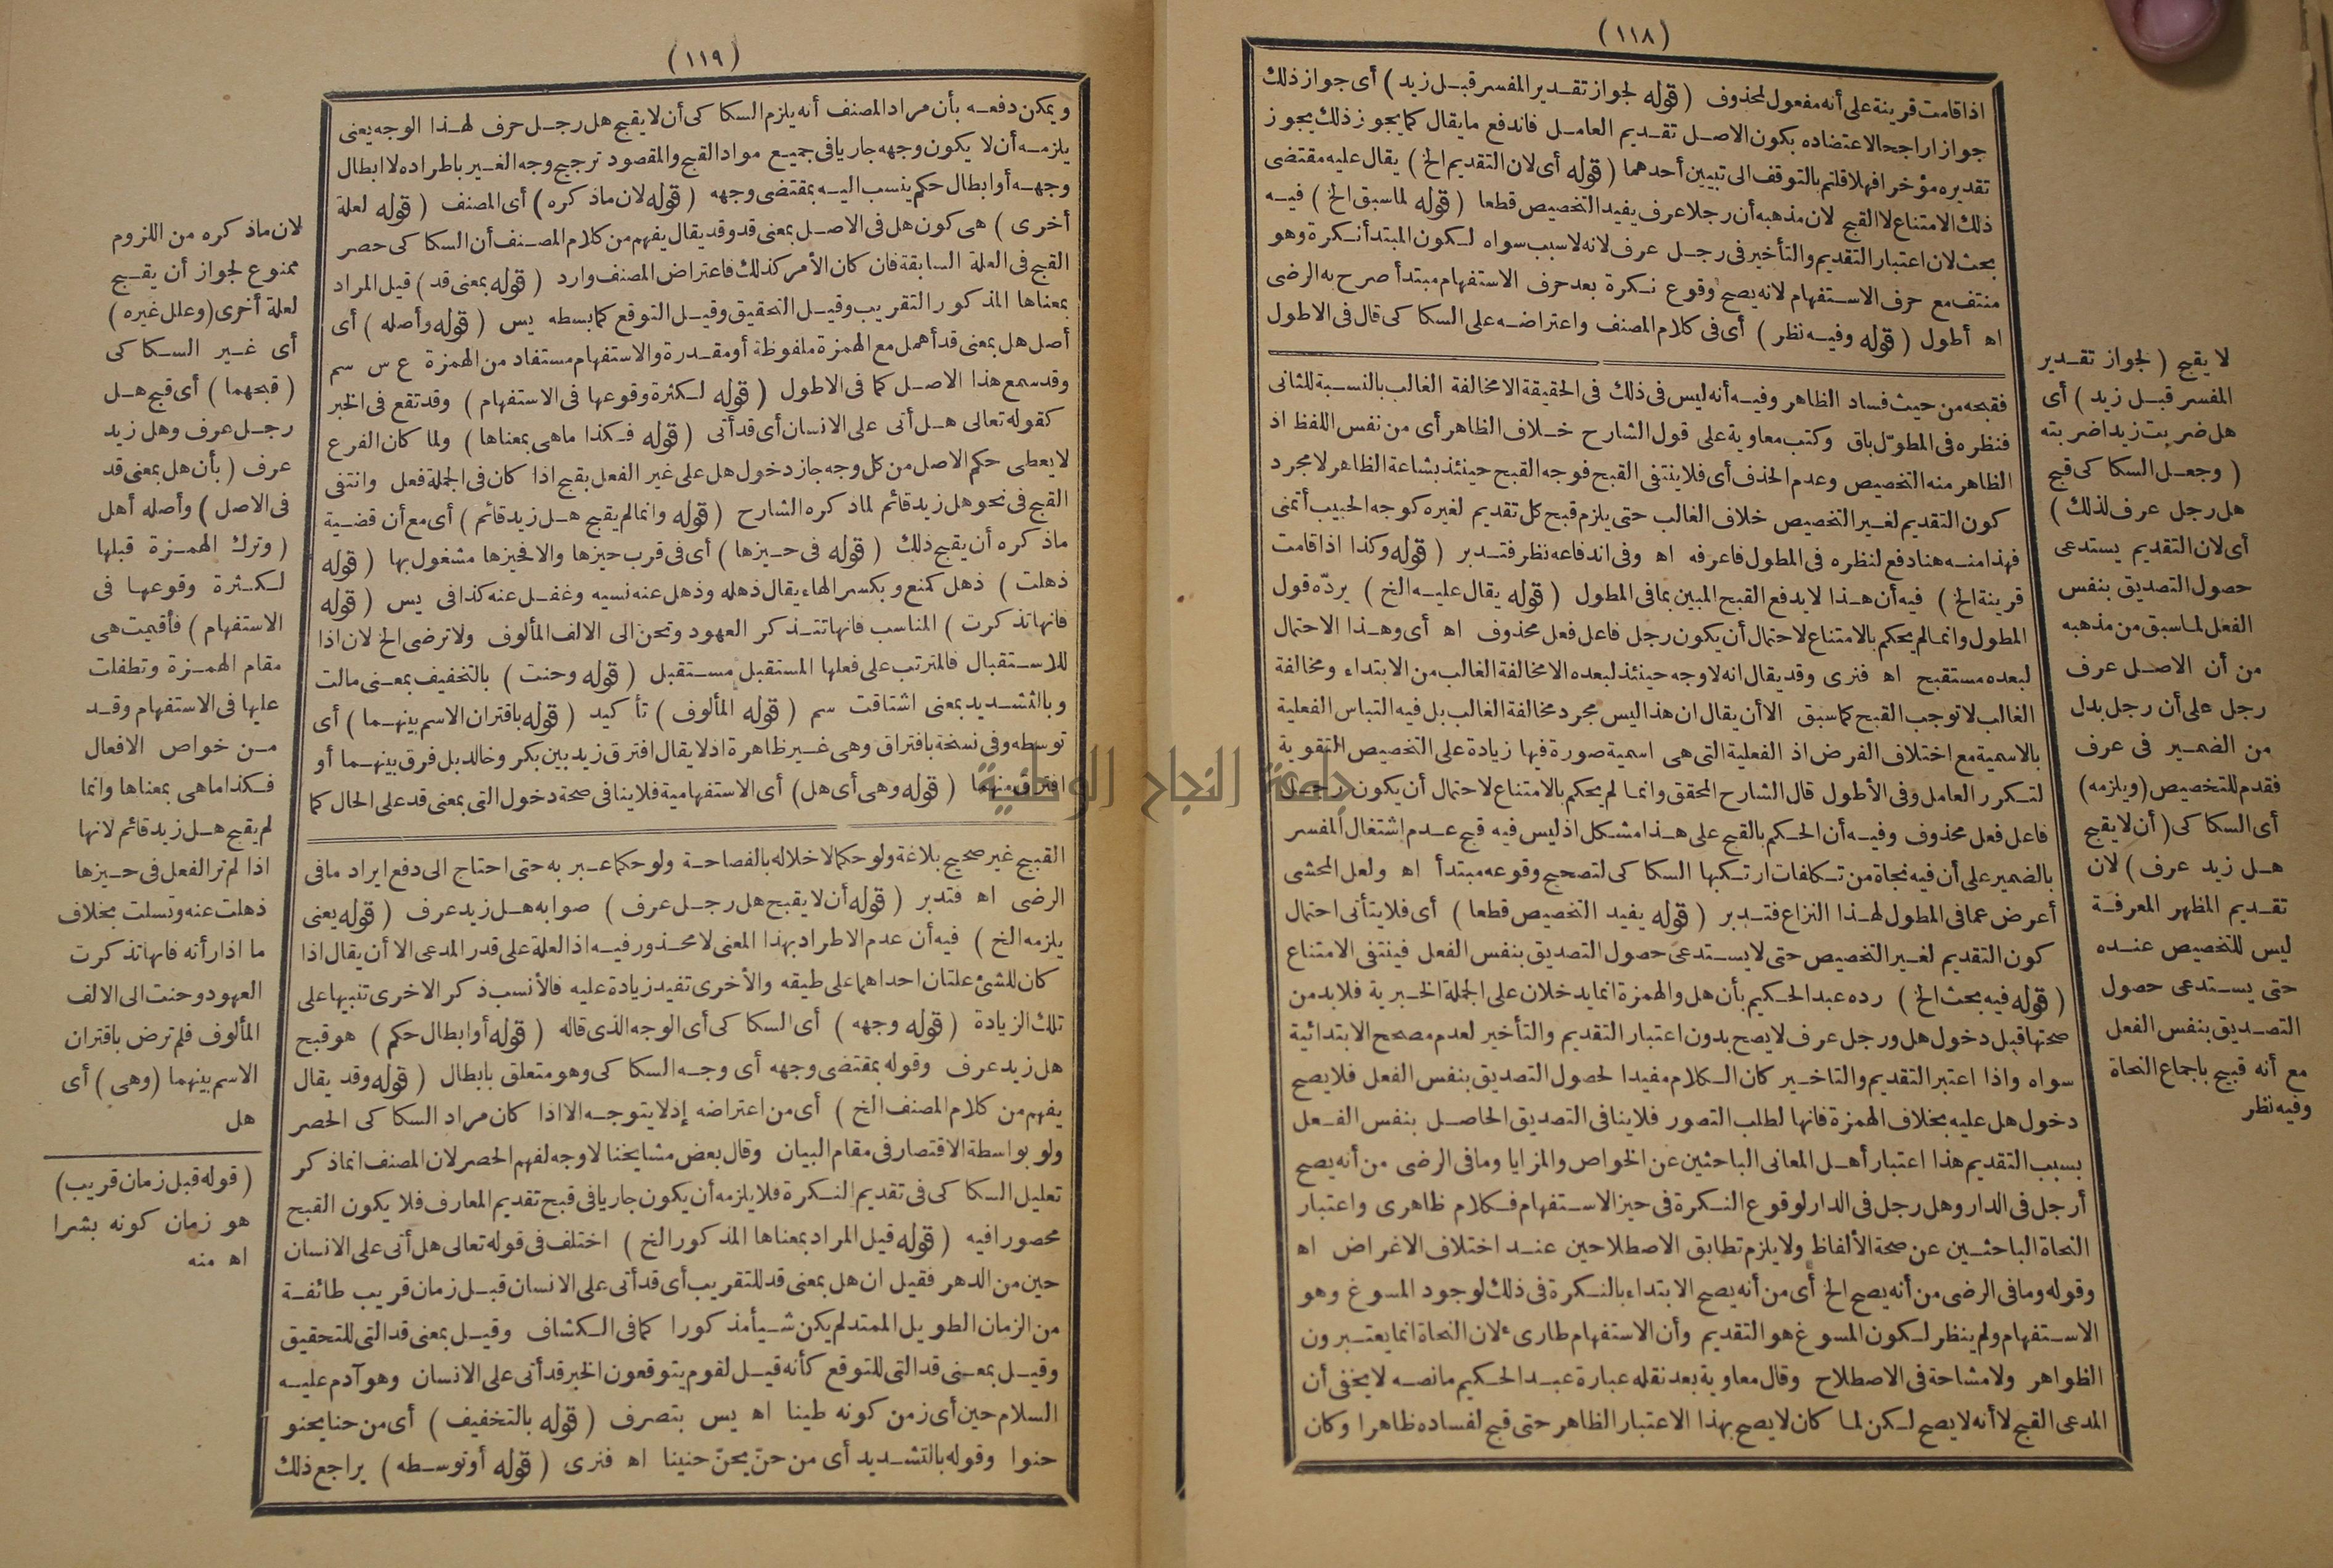 (١١٨)
اذا قامت قرينة على أنه مفعول لمحذوف (قوله لجواز تقدير المفسر قبل زيد) أى جواز ذلك
جوازا راجحا لاعتضاده بكون الاصل تقديم العامل فاندفع ما يقال كما يجوز ذلك يجوز
تقديره مؤخرا فهلا قلتم بالتوقف الى تبيين أحدهما (قوله أى لان التقديم الخ) يقال عليه مقتضى
ذلك الامتناع لا القبح لان مذهبه أن رجلا عرف يفيد التخصيص قطعا (قوله لما سبق الخ) فيه
بحث لان اعتبار التقديم والتأخير فى رجل عرف لانه لا سبب سواه لكون المبتدأ نكرة وهو
منتف مع حرف الاستفهام لانه يصح وقوع نكرة بعد حرف الاستفهام مبتدأ صرح به الرضى
اه أطول (قوله وفيه نظر) أى فى كلام المصنف واعتراضه على السكاكى قال فى الاطول
فقبحه من حيث فساد الظاهر وفيه أنه ليس فى ذلك فى الحقيقة الا مخالفة الغالب بالنسبة للثانى
فنظره فى المطول باق وكتب معاوية على قول الشارح خلاف الظاهر أى من نفس اللفظ اذ
الظاهر منه التخصيص وعدم الحذف أى فلا ينتفى القبح فوجه القبح حينئذ بشاعة الظاهر لا مجرد
كون التقديم لغير التخصيص خلاف الغالب حتى يلزم قبح كل تقديم لغيره كوجه الحبيب أتمنى
فهذا منه هنا دفع لنظره فى المطول فاعرفه اه وفى اندفاعه نظر فتدبر (قوله وكذا اذا قامت
قرينة الخ) فيه أن هذا لا يدفع القبح المبين بما فى المطول (قوله يقال عليه الخ) يردّه قول
المطول وانما لم يحكم بالامتناع لاحتمال أن يكون رجل فاعل فعل محذوف اه أى وهذا الاحتمال
لبعده مستقبح اه فنرى وقد يقال انه لا وجه حينئذ لبعده الا مخالفة الغالب من الابتداء ومخالفة
الغالب لا توجب القبح كما سبق الا أن يقال ان هذا ليس مجرد مخالفة الغالب بل فيه التباس الفعلية
بالاسمية مع اختلاف الغرض اذ الفعلية التى هى اسمية صورة فيها زيادة على التخصيص التقوية
لتكرر العامل وفى الأطول قال الشارح المحقق وانما لم يحكم بالامتناع لاحتمال أن يكون رجل
فاعل فعل محذوف وفيه أن الحكم بالقبح على هذا مشكل اذ ليس فيه قبح عدم اشتغال المفسر
بالضمير على أن فيه نجاة من تكلفات ارتكبها السكاكى لتصحيح وقوعه مبتدأ اه ولعل المحشى
أعرض عما فى المطول لهذا النزاع فتدبر (قوله يفيد التخصيص قطعا) أى فلا يتأتى احتمال
كون التقديم لغير التخصيص حتى لا يستدعى حصول التصديق بنفس الفعل فينتفى الامتناع
(قوله فيه بحث الخ) رده عبد الحكيم بأن هل والهمزة انما يدخلان على الجملة الخبرية فلا بد من
صحتها قبل دخول هل ورجل عرف لا يصح بدون اعتبار التقديم والتأخير لعدم مصحح الابتدائية
سواه واذا اعتبر التقديم والتاخير كان الكلام مفيدا لحصول التصديق بنفس الفعل فلا يصح
دخول هل عليه بخلاف الهمزة فانها لطلب التصور فلا ينافى التصديق الحاصل بنفس الفعل
بسبب التقديم هذا اعتبار أهل المعانى الباحثين عن الخواص والمزايا وما فى الرضى من أنه يصح
أرجل فى الدار وهل رجل فى الدار لوقوع النكرة فى حيز الاستفهام فكلام ظاهرى واعتبار
النحاة الباحثين عن صحة الألفاظ ولا يلزم تطابق الاصطلاحين عند اختلاف الاغراض اه
وقوله وما فى الرضى من أنه يصح الخ أى من أنه يصح الابتداء بالنكرة فى ذلك لوجود المسوغ وهو
الاستفهام ولم ينظر لكون المسوغ هو التقديم وأن الاستفهام طارئ لان النحاة انما يعتبرون
الظواهر ولا مشاحة فى الاصطلاح وقال معاوية بعد نقله عبارة عبد الحكيم ما نصه لا يخفى أن
المدعى القبح لا أنه لا يصح لكن لما كان لا يصح بهذا الاعتبار الظاهر حتى قبح لفساده ظاهرا وكان
لا يقبح (لجواز تقدير
المفسر قبل زيد) أى
هل ضربت زيدا ضربته
(وجعل السكاكى قبح
هل رجل عرف لذلك)
أى لان التقديم يستدعى
حصول التصديق بنفس
الفعل لما سبق من مذهبه
من أن الاصل عرف
رجل على أن رجل بدل
من الضمير فى عرف
فقدم للتخصيص (ويلزمه)
أى السكاكى (أن لا يقبح
هل زيد عرف) لان
تقديم المظهر المعرفة
ليس للتخصيص عنده
حتى يستدعى حصول
التصديق بنفس الفعل
مع أنه قبيح باجماع النحاة
وفيه نظر
(١١٩)
ويمكن دفعه بأن مراد المصنف أنه يلزم السكاكى أن لا يقبح هل رجل حرف لهذا الوجه يعنى
يلزمه أن لا يكون وجهه جاريا فى جميع مواد القبح والمقصود ترجيح وجه الغير باطراده لا ابطال
وجهه أو ابطال حكم ينسب اليه بمقتضى وجهه (قوله لان ما ذكره) أى المصنف (قوله لعلة
أخرى) هى كون هل فى الاصل بمعنى قد وقد يقال يفهم من كلام المصنف أن السكاكى حصر
القبح فى العلة السابقة فان كان الأمر كذلك فاعتراض المصنف وارد (قوله بمعنى قد) قيل المراد
بمعناها المذكور التقريب وقيل التحقيق وقيل التوقع كما بسطه يس (قوله وأصله) أى
أصل هل بمعنى قد أهمل مع الهمزة ملفوظة أو مقدرة والاستفهام مستفاد من الهمزة ع س سم
وقد سمع هذا الاصل كما فى الاطول (قوله لكثرة وقوعها فى الاستفهام) وقد تقع فى الخبر
كقوله تعالى هل أتى على الانسان أى قد أتى (قوله فكذا ما هى بمعناها) ولما كان الفرع
لا يعطى حكم الاصل من كل وجه جاز دخول هل على غير الفعل بقبح اذا كان فى الجملة فعل وانتفى
القبح فى نحو هل زيد قائم لما ذكره الشارح (قوله وانما لم يقبح هل زيد قائم) أى مع أن قضية
ما ذكره أن يقبح ذلك (قوله فى حيزها) أى فى قرب حيزها والا فحيزها مشغول بها (قوله
ذهلت) ذهل كمنع وبكسر الهاء يقال ذهله وذهل عنه نسيه وغفل عنه كذا فى يس (قوله
فانها تذكرت) المناسب فانها تتذكر العهود وتحن الى الالف المألوف ولا ترضى الخ لان اذا
للاستقبال فالمترتب على فعلها المستقبل مستقبل (قوله وحنت) بالتخفيف بمعنى مالت
وبالتشديد بمعنى اشتاقت سم (قوله المألوف) تأكيد (قوله باقتران الاسم بينهما) أى
توسطه وفى نسخة بافتراق وهى غير ظاهرة اذ لا يقال افترق زيد بين بكر وخالد بل فرق بينهما أو
افتراق منهما (قوله وهى أى هل) أى الاستفهامية فلا ينافى صحة دخول التى بمعنى قد على الحال كما
القبيح غير صحيح بلاغة ولو حكما لاخلاله بالفصاحة ولو حكما عبر به حتى احتاج الى دفع ايراد ما فى
الرضى اه فتدبر (قوله أن لا يقبح هل رجل عرف) صوابه هل زيد عرف (قوله يعنى
يلزمه الخ) فيه أن عدم الاطراد بهذا المعنى لا محذور فيه اذ العلة على قدر المدعى الا أن يقال اذا
كان للشئ علتان احداهما على طبقه والأخرى تفيد زيادة عليه فالأنسب ذكر الاخرى تنبيها على
تلك الزيادة (قوله وجهه) أى السكاكى أى الوجه الذى قاله (قوله أو ابطال حكم) هو قبح
هل زيد عرف وقوله بمقتضى وجهه أى وجه السكاكى وهو متعلق بابطال (قوله وقد يقال
يفهم من كلام المصنف الخ) أى من اعتراضه إذ لا يتوجه الا اذا كان مراد السكاكى الحصر
ولو بواسطة الاقتصار فى مقام البيان وقال بعض مشايخنا لا وجه لفهم الحصر لان المصنف انما ذكر
تعليل السكاكى فى تقديم النكرة فلا يلزمه أن يكون جاريا فى قبح تقديم المعارف فلا يكون القبح
محصورا فيه (قوله قيل المراد بمعناها المذكور الخ) اختلف فى قوله تعالى هل أتى على الانسان
حين من الدهر فقيل ان هل بمعنى قد للتقريب أى قد أتى على الانسان قبل زمان قريب طائفة
من الزمان الطويل الممتد لم يكن شيأ مذكورا كما فى الكشاف وقيل بمعنى قد التى للتحقيق
وقيل بمعنى قد التى للتوقع كأنه قيل لقوم يتوقعون الخبر قد أتى على الانسان وهو آدم عليه
السلام حين أى زمن كونه طينا اه يس بتصرف (قوله بالتخفيف) أى من حنا يحنو
حنوا وقوله بالتشديد أى من حنّ يحنّ حنينا اه فنرى (قوله أو توسطه) يراجع ذلك
لان ما ذكره من اللزوم
ممنوع لجواز أن يقبح
لعلة أخرى (وعلل غيره)
أى غير السكاكى
(قبحهما) أى قبح هل
رجل عرف وهل زيد
عرف (بأن هل بمعنى قد
فى الاصل) وأصله أهل
(وترك الهمزة قبلها
لكثرة وقوعها فى
الاستفهام) فأقيمت هى
مقام الهمزة وتطفلت
عليها فى الاستفهام وقد
من خواص الافعال
فكذا ما هى بمعناها وانما
لم يقبح هل زيد قائم لانها
اذا لم تر الفعل فى حيزها
ذهلت عنه وتسلت بخلاف
ما اذا رأته فانها تذكرت
العهود وحنت الى الالف
المألوف فلم ترض باقتران
الاسم بينهما (وهى) أى
هل
(قوله قبل زمان قريب)
هو زمان كونه بشرا
اه منه
جامعة النجاح الوطنية